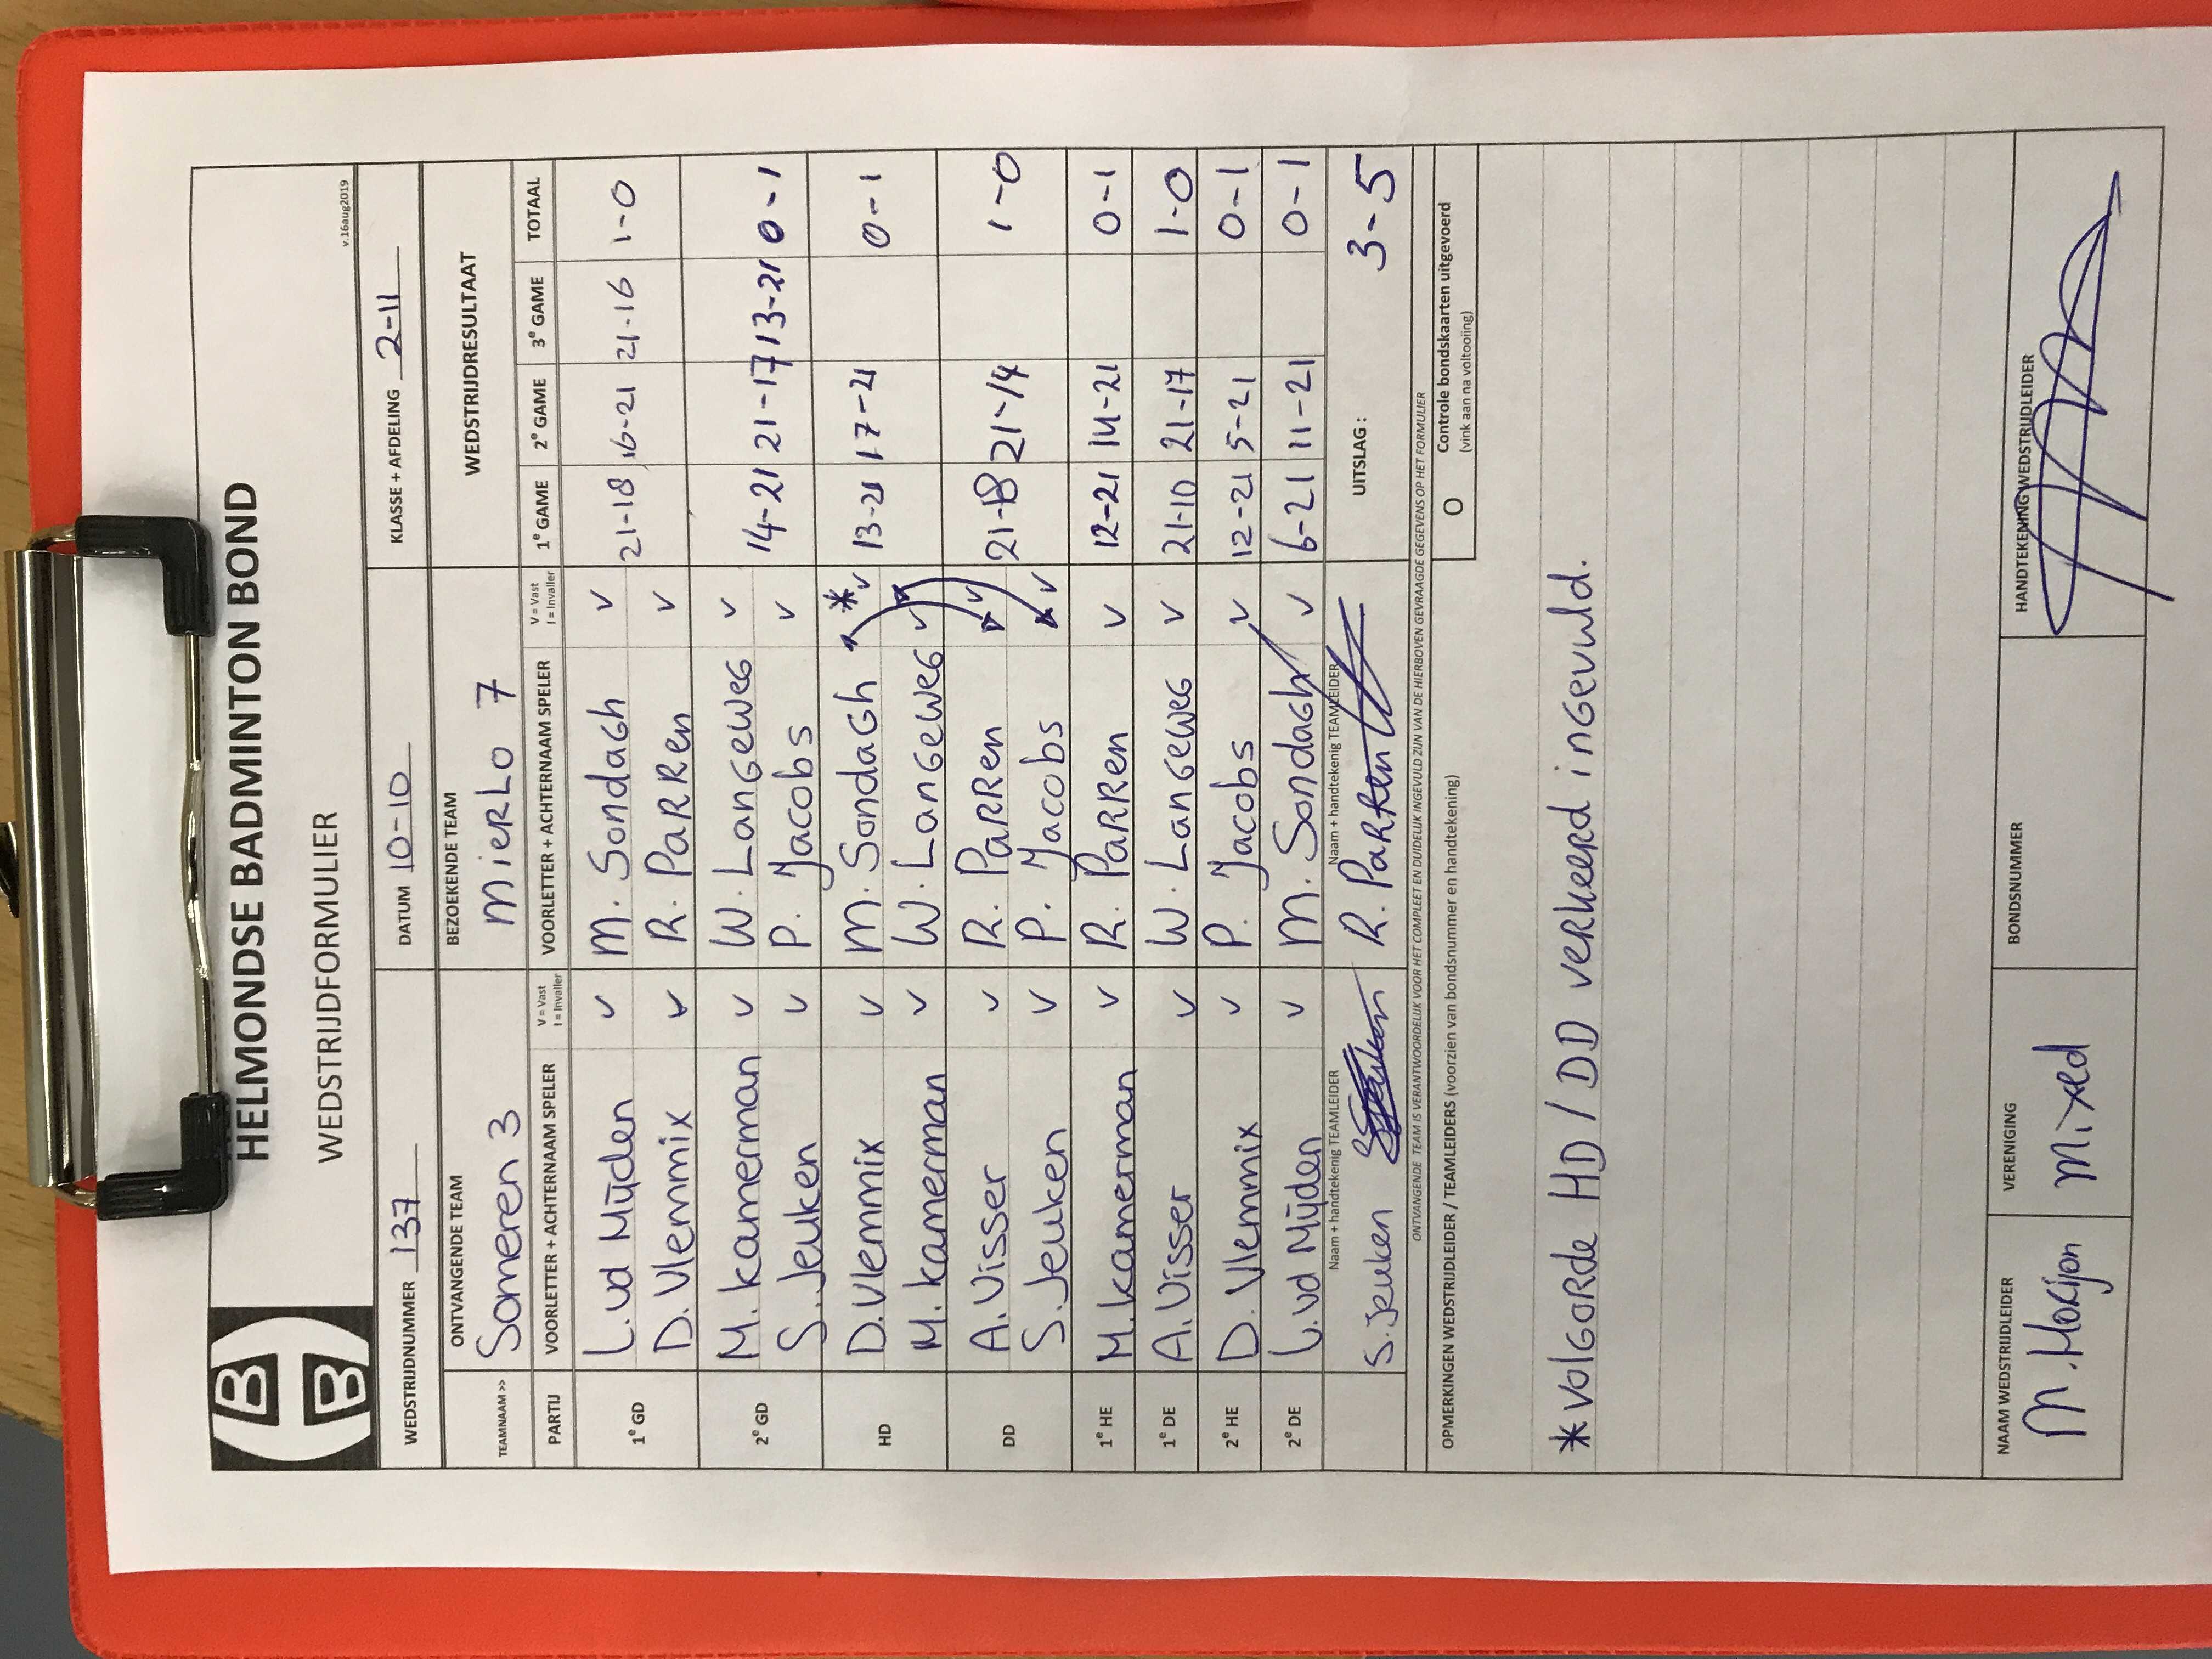 HELMONDSE BADMINTON BOND
WEDSTRIJDFORMULIER
v.16aug2019
WEDSTRIJDNUMMER 137 DATUM 10-10 KLASSE + AFDELING 2-11
TEAMNAAM >> ONTVANGENDE TEAM BEZOEKENDE TEAM WEDSTRIJDRESULTAAT
Someren 3 MierLo 7
PARTIJ VOORLETTER + ACHTERNAAM SPELER V = Vast I = Invaller VOORLETTER + ACHTERNAAM SPELER V = Vast I = Invaller 1e GAME 2e GAME 3e GAME TOTAAL
1e GD L. vd Mijden v M. Sondagh v 21-18 16-21 21-16 1-0
D. Vlemmix v R. Parren v
2e GD M. kamerman v W. Langeweg v 14-21 21-17 13-21 0-1
S. Jeuken v P. Jacobs v
HD D. Vlemmix v M. Sondagh * v 13-21 17-21 0-1
M. kamerman v W. Langeweg v
DD A. Visser v R. Parren v 21-18 21-14 1-0
S. Jeuken v P. Jacobs v
1e HE M. kamerman v R. Parren v 12-21 14-21 0-1
1e DE A. Visser v W. Langeweg v 21-10 21-17 1-0
2e HE D. Vlemmix v P. Jacobs v 12-21 5-21 0-1
2e DE L. vd Mijden v M. Sondagh v 6-21 11-21 0-1
Naam + handtekenig TEAMLEIDER Naam + handtekenig TEAMLEIDER
S. Jeuken R. Parren UITSLAG : 3-5
ONTVANGENDE TEAM IS VERANTWOORDELIJK VOOR HET COMPLEET EN DUIDELIJK INGEVULD ZIJN VAN DE HIERBOVEN GEVRAAGDE GEGEVENS OP HET FORMULIER
OPMERKINGEN WEDSTRIJDLEIDER / TEAMLEIDERS (voorzien van bondsnummer en handtekening)
O Controle bondskaarten uitgevoerd
(vink aan na voltooiing)
* volgorde HD / DD verkeerd ingevuld.
NAAM WEDSTRIJDLEIDER VERENIGING BONDSNUMMER HANDTEKENING WEDSTRIJDLEIDER
M. Morijon Mixed